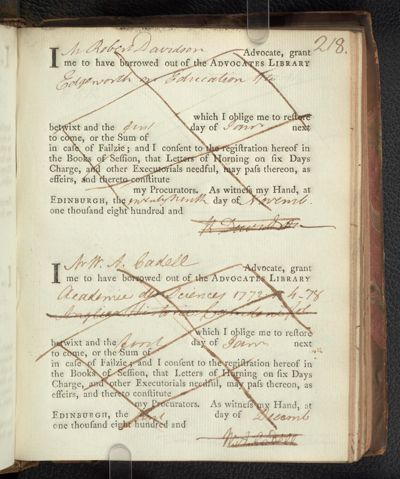 218.
I Mr Robert Davidson Advocate, grant
me to have borrowed out of the ADVOCATES LIBRARY
Edgeworth on Education 4to
which I oblige me to restore
betwixt and the first day of Janr next
to come, or the Sum of
in case of Failzie; and I consent to the registration hereof in
the Books of Session, that Letters of Horning on six Days
Charge, and other Executorials needful, may pass thereon, as
effeirs, and thereto constitute
my Procurators. As witness my Hand, at
EDINBURGH, the twenty ninth day of Novemb.
one thousand eight hundred and
R Davidson
I Mr W. A. Cadell Advocate, grant
me to have borrowed out of the ADVOCATES LIBRARY
Academie des Sciences 1772 4-78
which I oblige me to restore
betwixt and the first day of Janr next
to come, or the Sum of
in case of Failzie; and I consent to the registration hereof in
the Books of Session, that Letters of Horning on six Days
Charge, and other Executorials needful, may pass thereon, as
effeirs, and thereto constitute
my Procurators. As witness my Hand, at
EDINBURGH, the first day of Decemb
one thousand eight hundred and